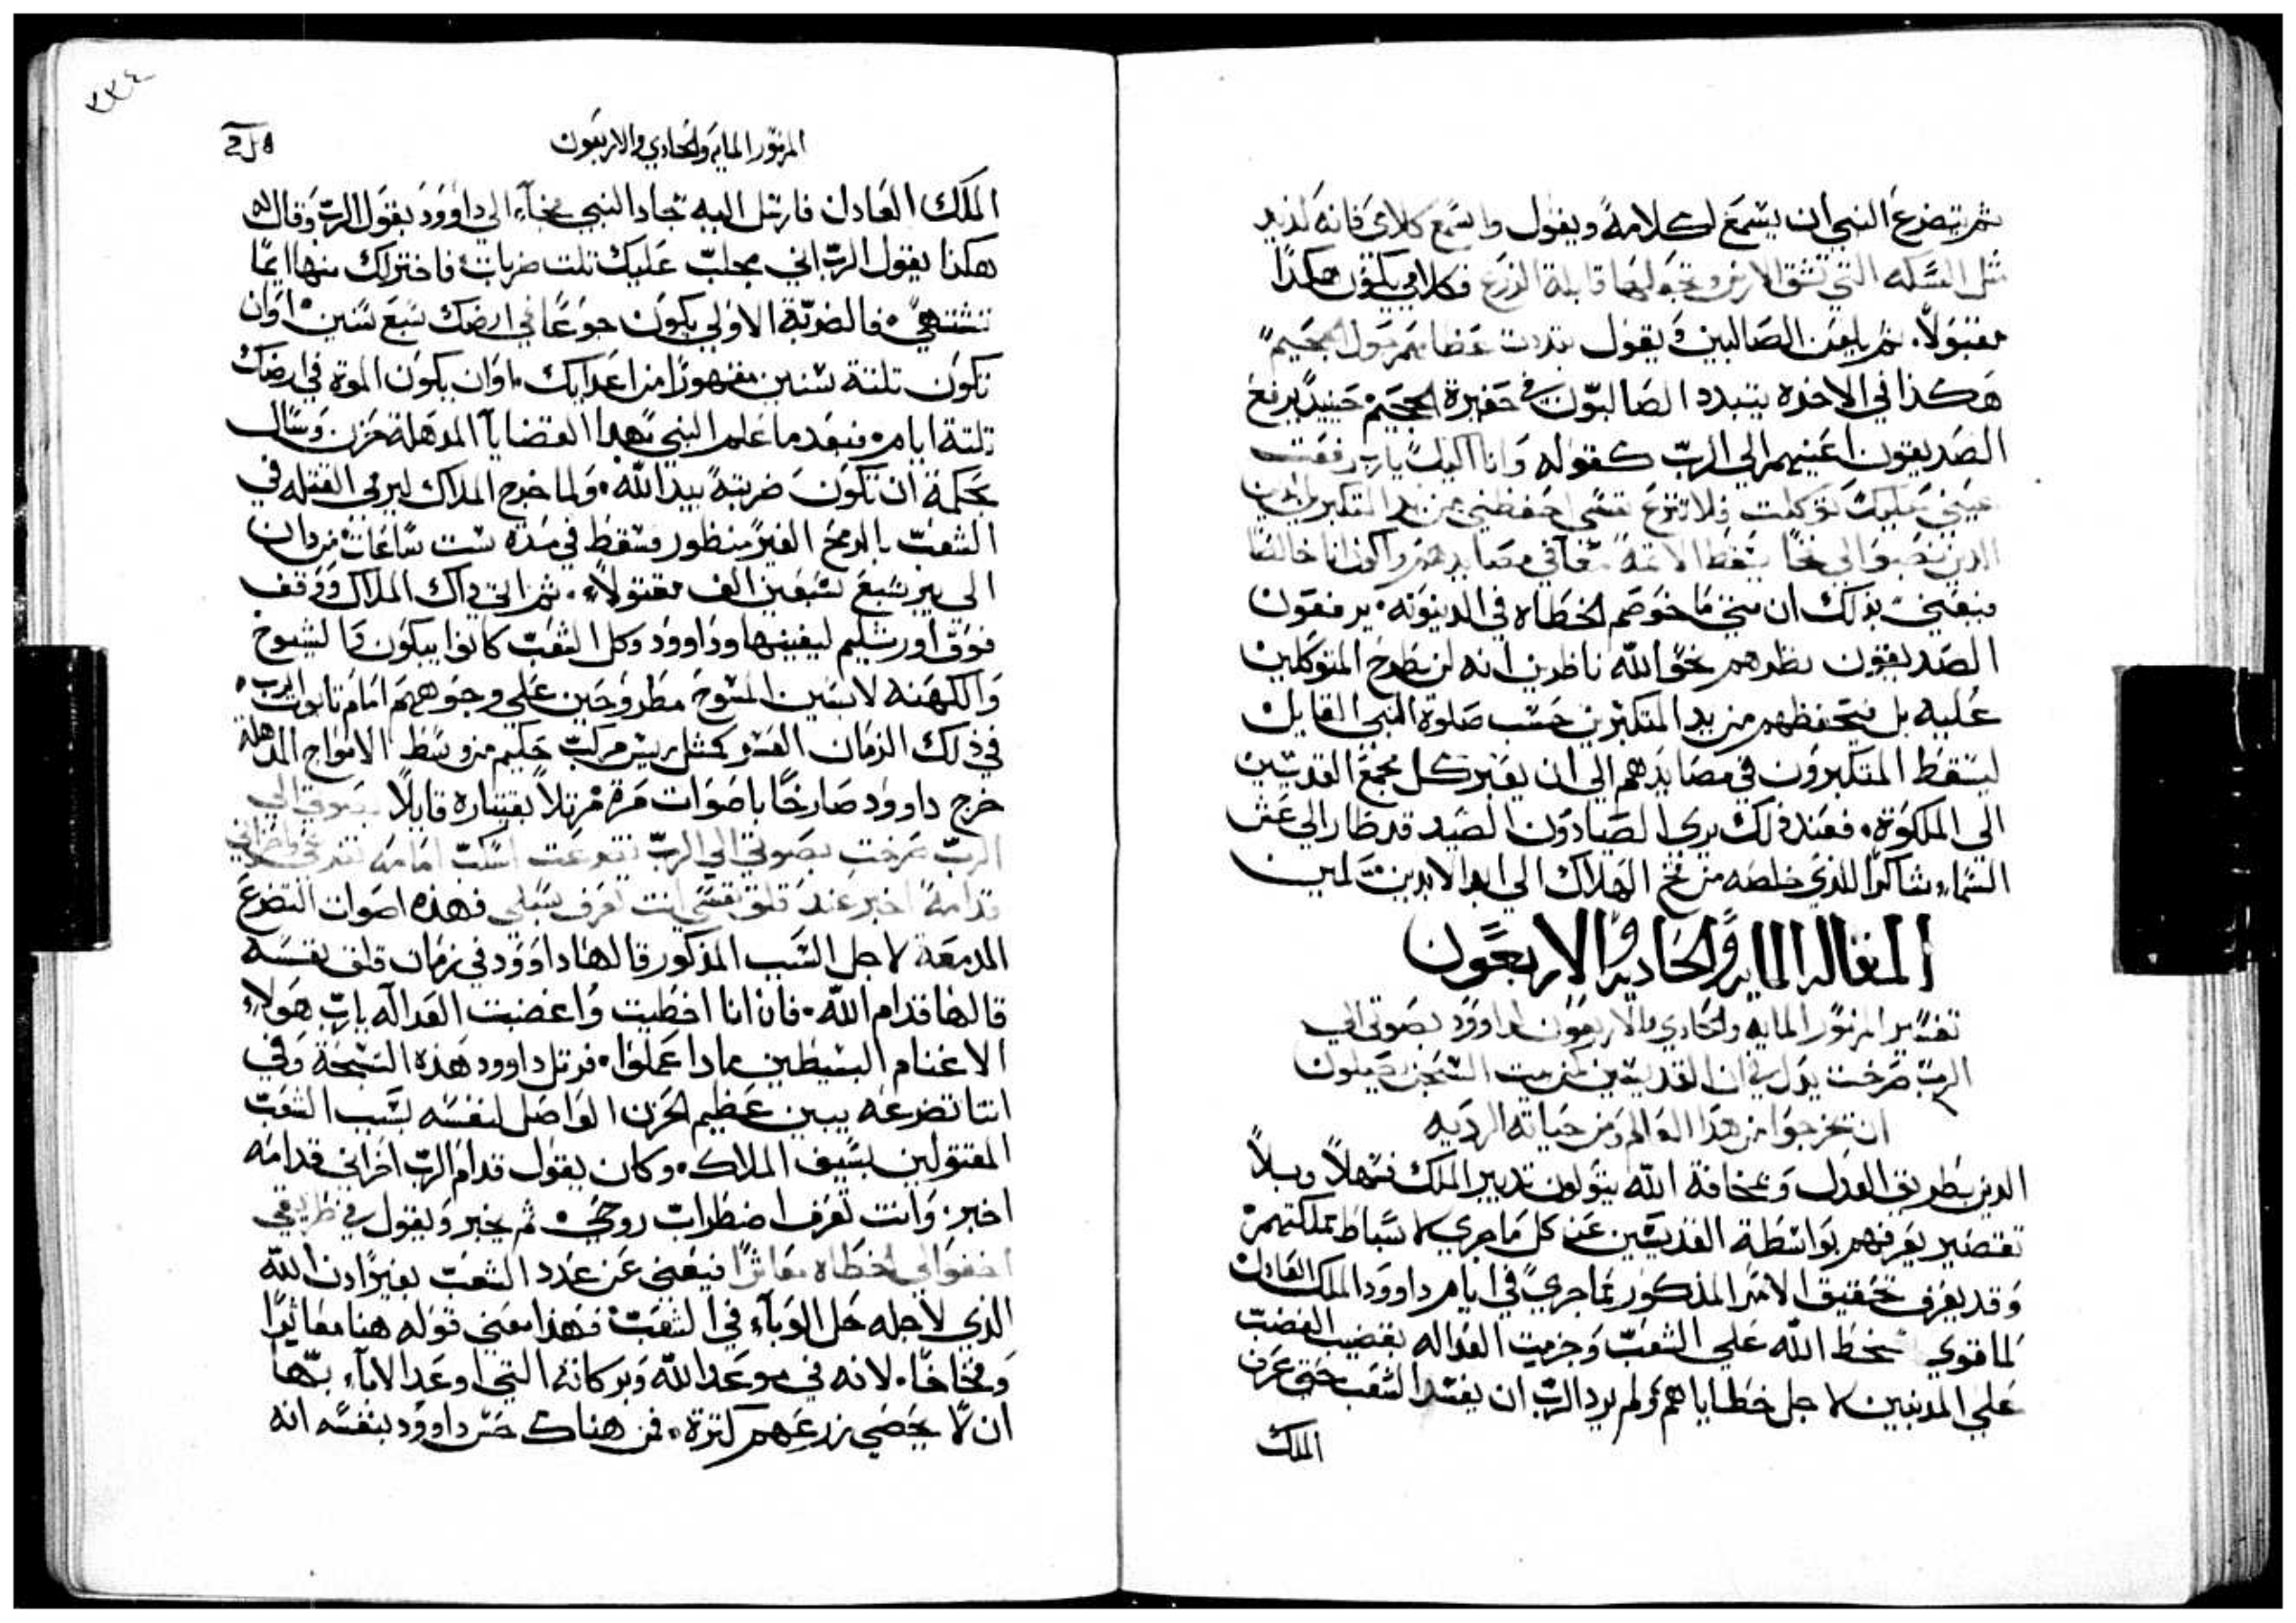 ثم يتضرع النبي ان يسمع لكلامه ويقول واسمع كلامي فانه لذيد
مثل السكه التي تشق الارض وتجعلها قابلة الزرع فكلامي يكون هكذا
مقبولاً. ثم يلعن الصالبين ويقول تبددت عظامهم حول الجحيم
هكذا في الاخره يتبدد الصالبون في حفيرة الجحيم حينيد يرفع
الصديقون اعينهم الي الرب كقوله وانا اليك يارب رفعت
عيني عليك توكلت فلا تنزع نفسي احفظني من يد المتكبرين
الدين نصبوا لي فخاً يسقط الاثمه في مصايدهم واكون انا خالصاً
فيعني بذلك ان متي ما خوصم الخطاه في الدينونه. يرفعون
الصديقون نظرهم نحو الله ناظرين انه لن يطرح المتوكلين
عليه بل يتحفظهم من يد المتكبرين حسب صلوة النبي القايل
ليسقط المتكبرون في مصايدهم الي ان يعبر كل مجمع القديسين
الي الملكوة. فعند ذلك يري الصيادون الصيد قد طار الي عش
السماء شاكراً للذي خلصه من فخ الهلاك الي ابد الابدين امين
المقاله المايه والحاديه والاربعون
تفسير المزمور المايه والحادي والاربعون لداوود بصوتي الي
الرب صرخت يدل علي ان القديسين كمن بيت السجن يصلون
ان يخرجوا من هذا العالم ومن حياته الرديه
الدين بطريق العدل ومخافة الله يتولون تدبير الملك فسهلاً وبلا
تقصير يعرفهم بواسطة القديسين عن كل ما جري لاسباط مملكتهم
وقد يعرف تحقيق الامر المذكور بما جري في ايام داوود الملك العادل
لما قوي سخط الله علي الشعب وجزمت العداله بقضيب الغضب
علي المدنبين لاجل خطاياهم ولم يرد الرب ان يفسد الشعب حتي عرف
الملك
٣٣٤
المزمور المايه والحادي والاربعون
الملك العادل فارسل اليه جاد النبي فجآء الي داوود بقول الرب وقال له
هكذا يقول الرب اني مجلب عليك تلت ضربات فاختر لك منها ايما
تشتهي. فالضربة الاولي يكون جوعاً في ارضك سبع سنين او ان
تكون تلتة سنين مقهوراً من اعدايك. او ان يكون الموة في ارضك
تلتة ايام. فبعد ما علم النبي بهدا القضايا المدهلة حزن وسال
بحكمة ان تكون ضربته بيد الله. ولما خرج الملاك ليرمي القتله في
الشعب بالرمح الغير منظور فسقط في مدة ست ساعات من دان
الي بير سبع سبعين الف مقتولاً. ثم اتي داك الملاك ووقف
فوق اورشليم ليفنيها وداوود وكل الشعب كانوا يبكون والشيوخ
والكهنه لابسين المسوح مطروحين علي وجوههم امام تابوت الرب
في ذلك الزمان العسر كمثل ريس مركب حكيم من وسط الامواج المدهلة
خرج داوود صارخاً باصوات مرة مرتلاً بقيتاره قايلاً بصوتي الي
الرب صرخت بصوتي الي الرب تضرعت اسكب امامه تضرعي واحزاني
قدامه اخبر عند قلق نفسي انت تعرف سبلي فهذه اصوات التضرع
المدمعة لاجل السبب المذكور قالها داوود في زمان قلق نفسه
قالها قدام الله. فان انا اخطيت واغضبت العداله يارب هولاء
الاغنام البسيطين مادا عملوا. فرتل داوود هذه التسبحة وفي
انتا تضرعه يبين عظيم الحزن الواصل لنفسه بسبب الشعب
المقتولين بسيف الملاك. وكان يقول قدام الرب احزاني قدامه
اخبر. وانت تعرف اضطراب روحي. ثم يخبر ويقول في طريقي
اخفوا لي الخطاه معاثراً فيعني عن عدد الشعب بغير ادن الله
الذي لاجله حل الوبآء في الشعب فهذا معني قوله هنا معاثيرا
وفخاخاً. لانه في موعد الله وبركاته التي اوعد الاباء بها
ان لا يحصي زرعهم كترة. فمن هناك حس داوود بنفسه انه